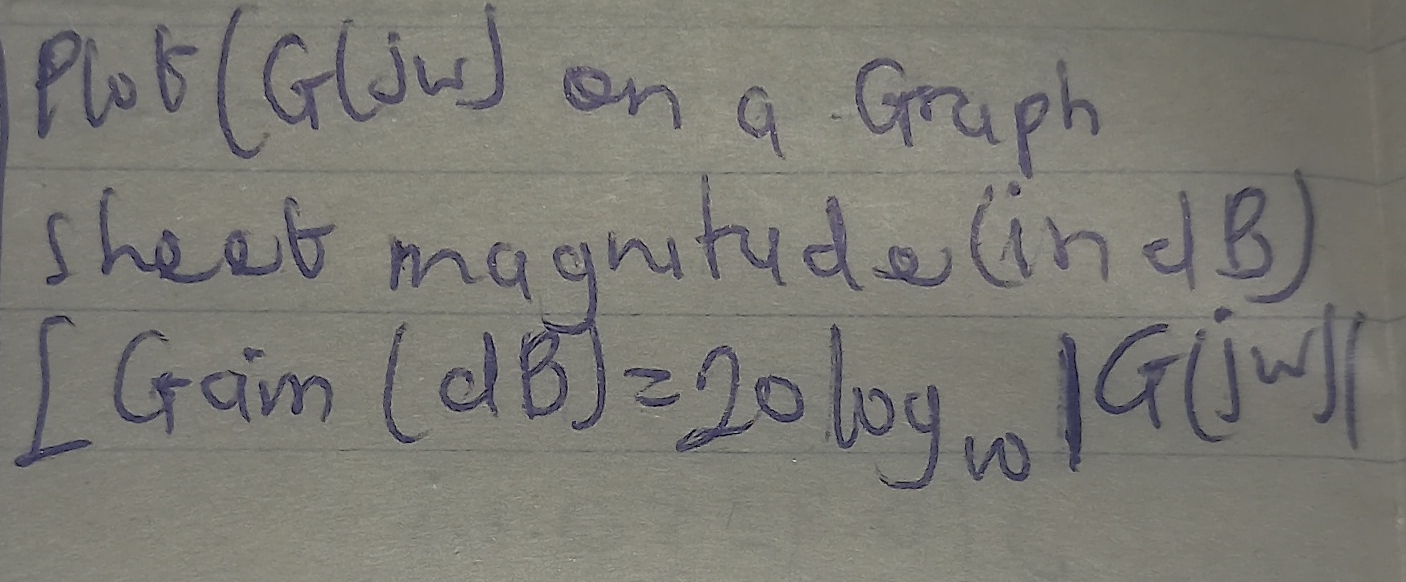 Plot (G(jw) on a Graph
sheet magnitude (in dB)
[Gain (dB) = 20 log10 |G(jw)|